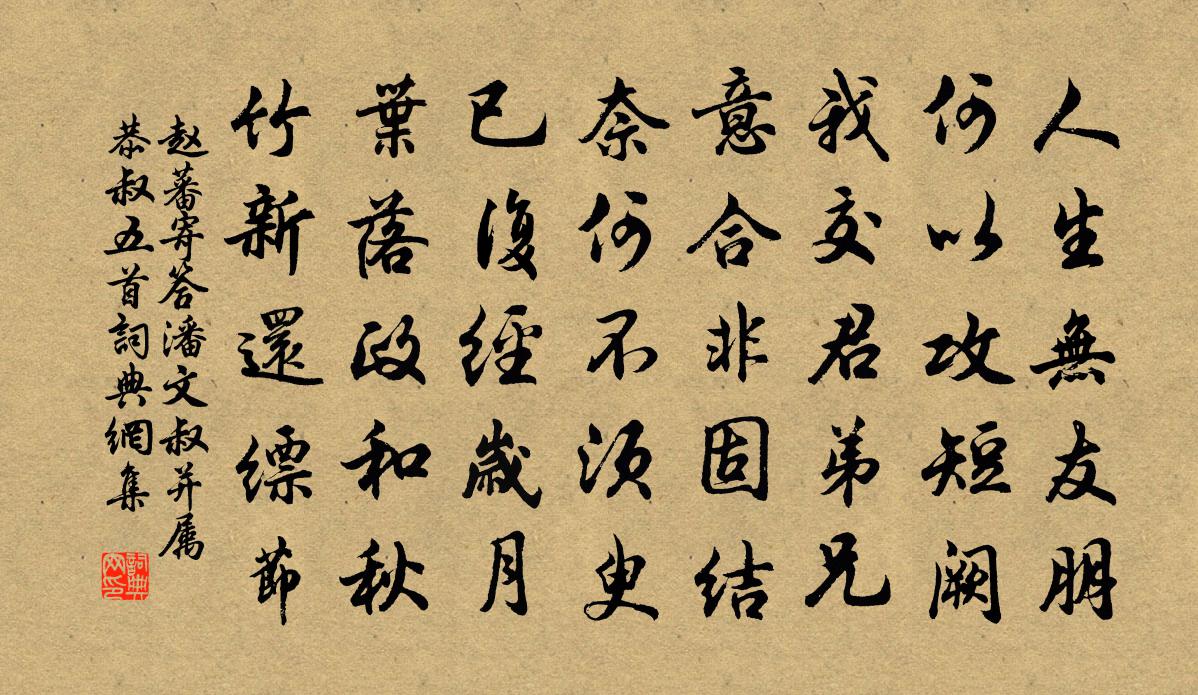 人生無友朋
何以攻短阙
我交君弟兄
意合非固结
奈何不须臾
已復經歲月
葉落政和秋
竹新還缥節
赵蕃寄答潘文叔并属
恭叔五首詞典網集
詞典网印